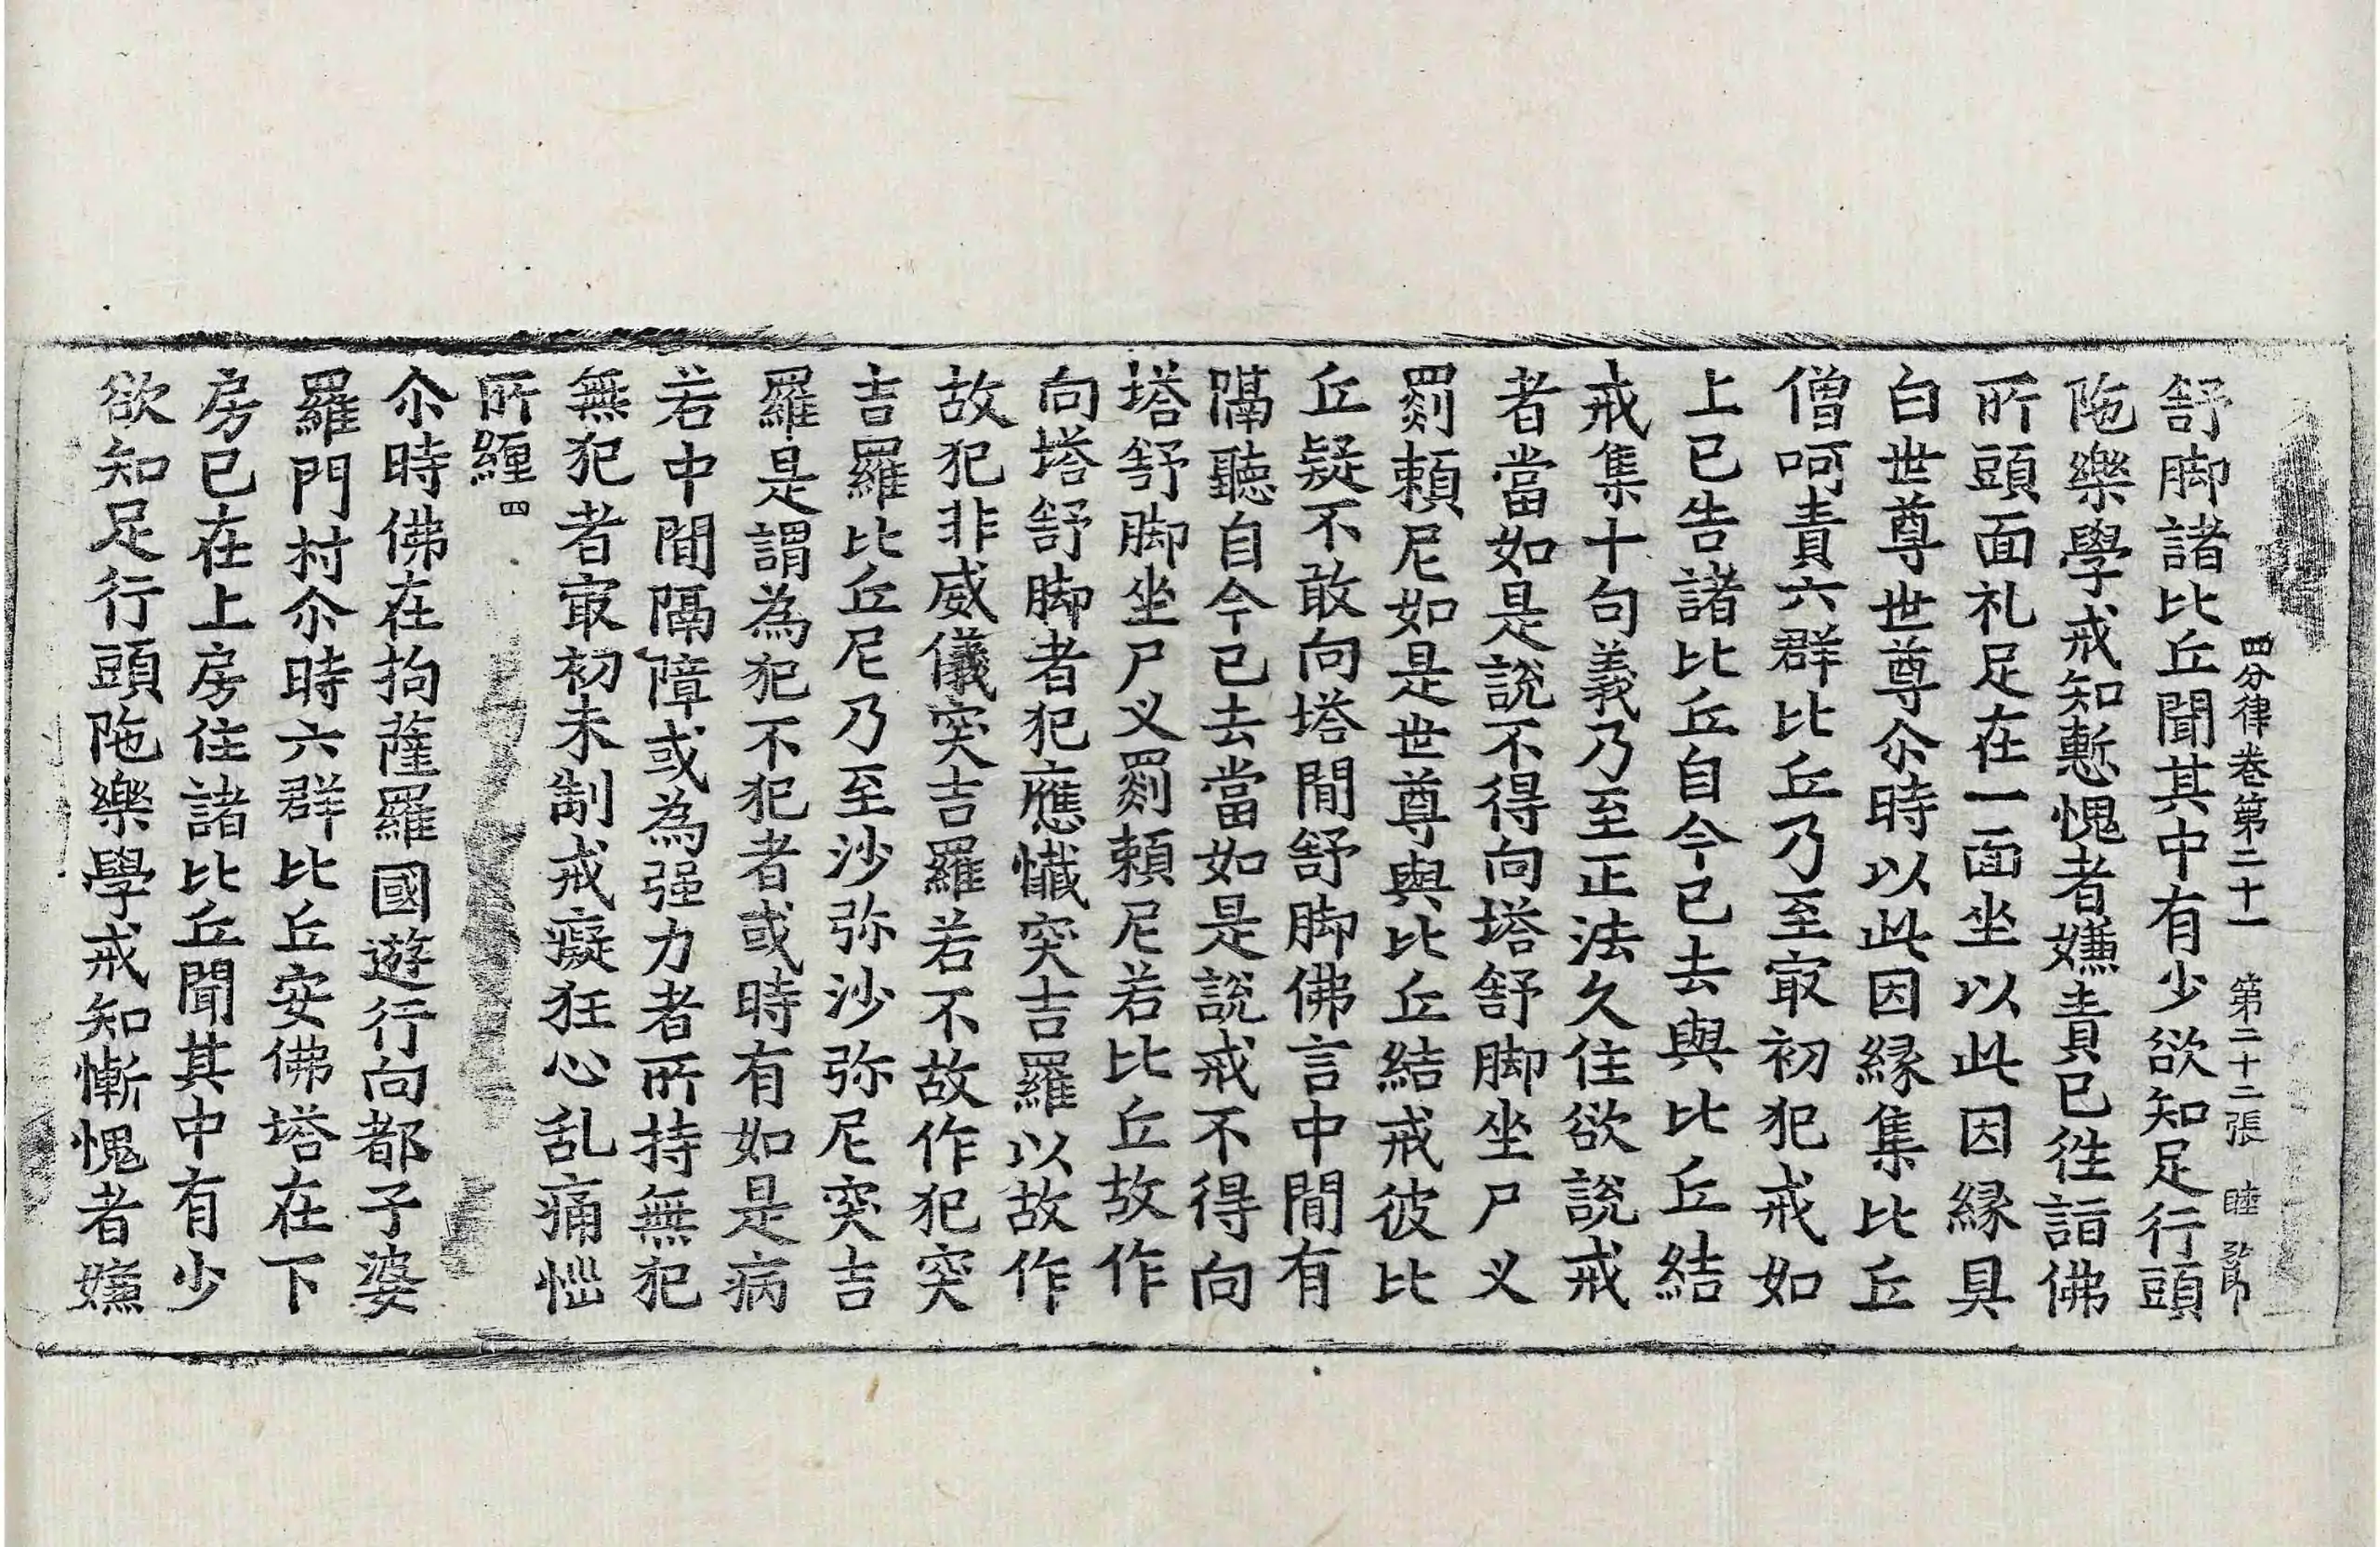 四分律卷第二十一 第二十二張 睦
舒脚諸比丘聞其中有少欲知足行頭
陁樂學戒知慙愧者嫌責已徃詣佛
所頭面礼足在一面坐以此因縁具
白世尊世尊尒時以此因縁集比丘
僧呵責六群比丘乃至㝡初犯戒如
上已告諸比丘自今已去與比丘結
戒集十句義乃至正法久住欲說戒
者當如是說不得向塔舒脚坐尸叉
罽賴尼如是世尊與比丘結戒彼比
丘疑不敢向塔間舒脚佛言中間有
隔聽自今已去當如是說戒不得向
塔舒脚坐尸叉罽賴尼若比丘故作
向塔舒脚者犯應懺突吉羅以故作
故犯非威儀突吉羅若不故作犯突
吉羅比丘尼乃至沙弥沙弥尼突吉
羅是謂為犯不犯者或時有如是病
若中間隔障或為强力者所持無犯
無犯者㝡初未制戒癡狂心乱痛惱
所纏四
尒時佛在拘薩羅國遊行向都子婆
羅門村尒時六群比丘安佛塔在下
房已在上房住諸比丘聞其中有少
欲知足行頭陁樂學戒知慚愧者嫌